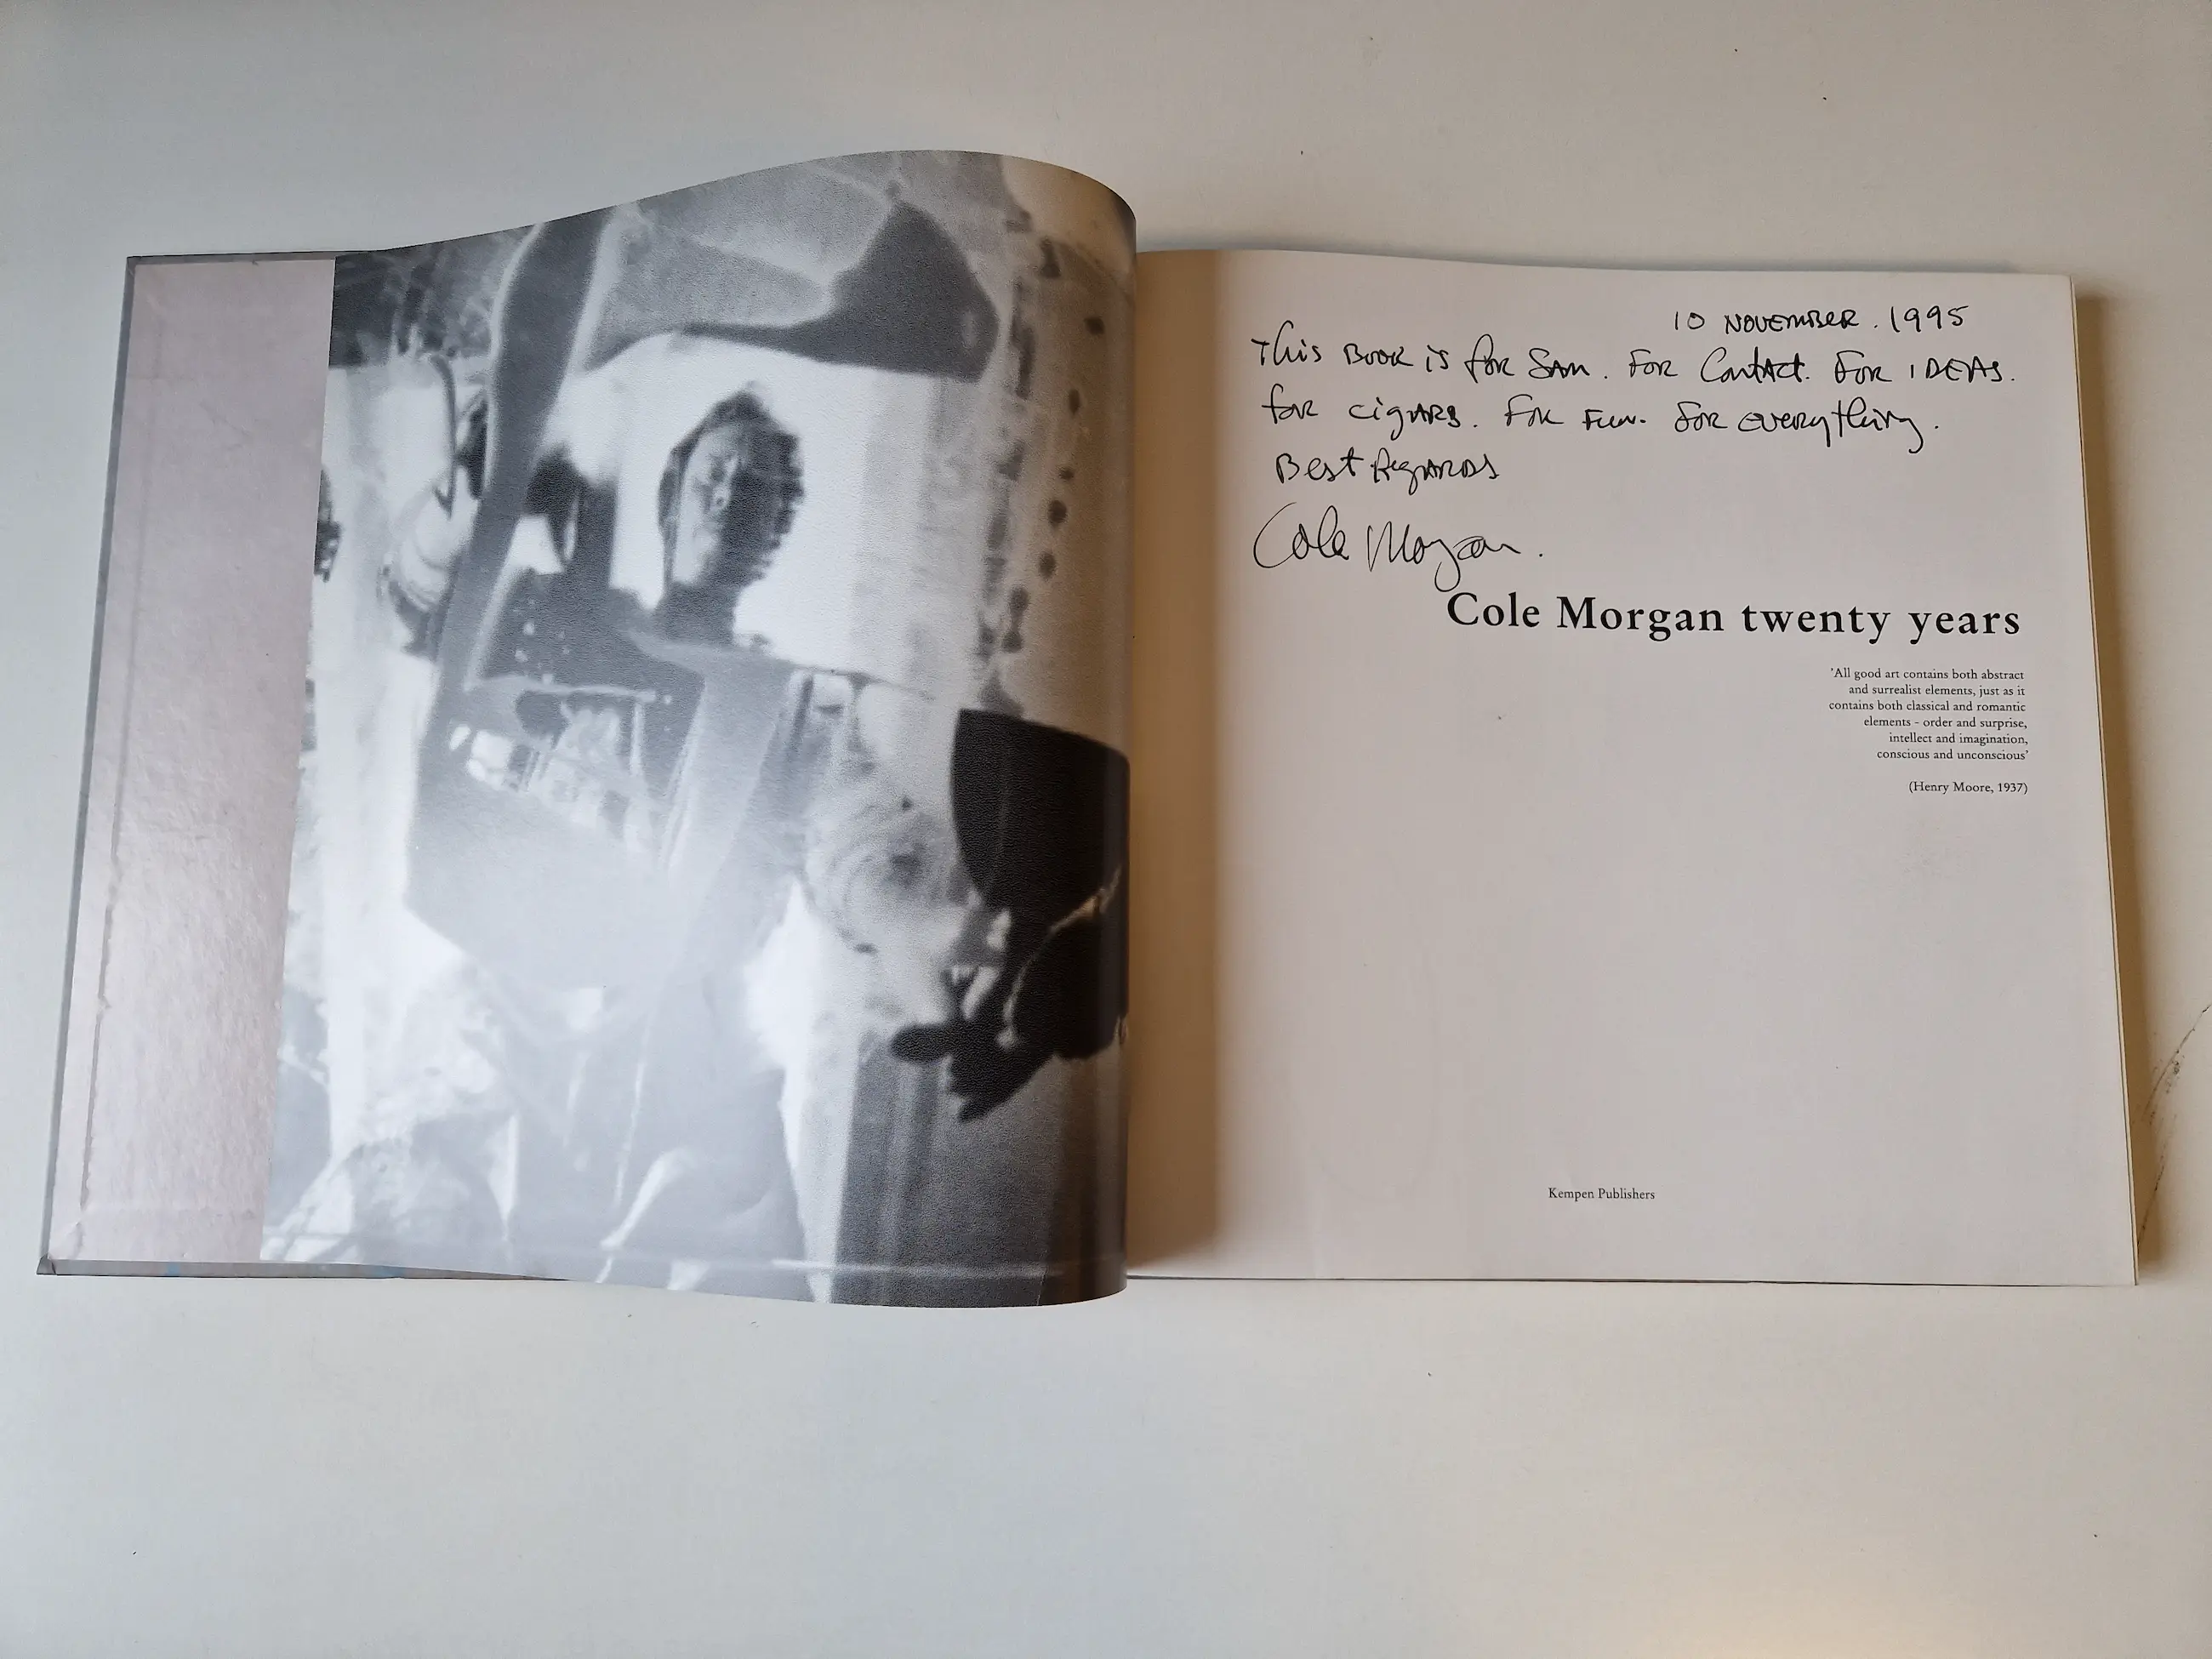 10 NOVEMBER. 1995
This Book is for Sam. For Contact. For IDEAS.
for cigars. For Fun. For everything.
Best Regards
Cole Morgan.
Cole Morgan twenty years
'All good art contains both abstract
and surrealist elements, just as it
contains both classical and romantic
elements - order and surprise,
intellect and imagination,
conscious and unconscious'
(Henry Moore, 1937)
Kempen Publishers